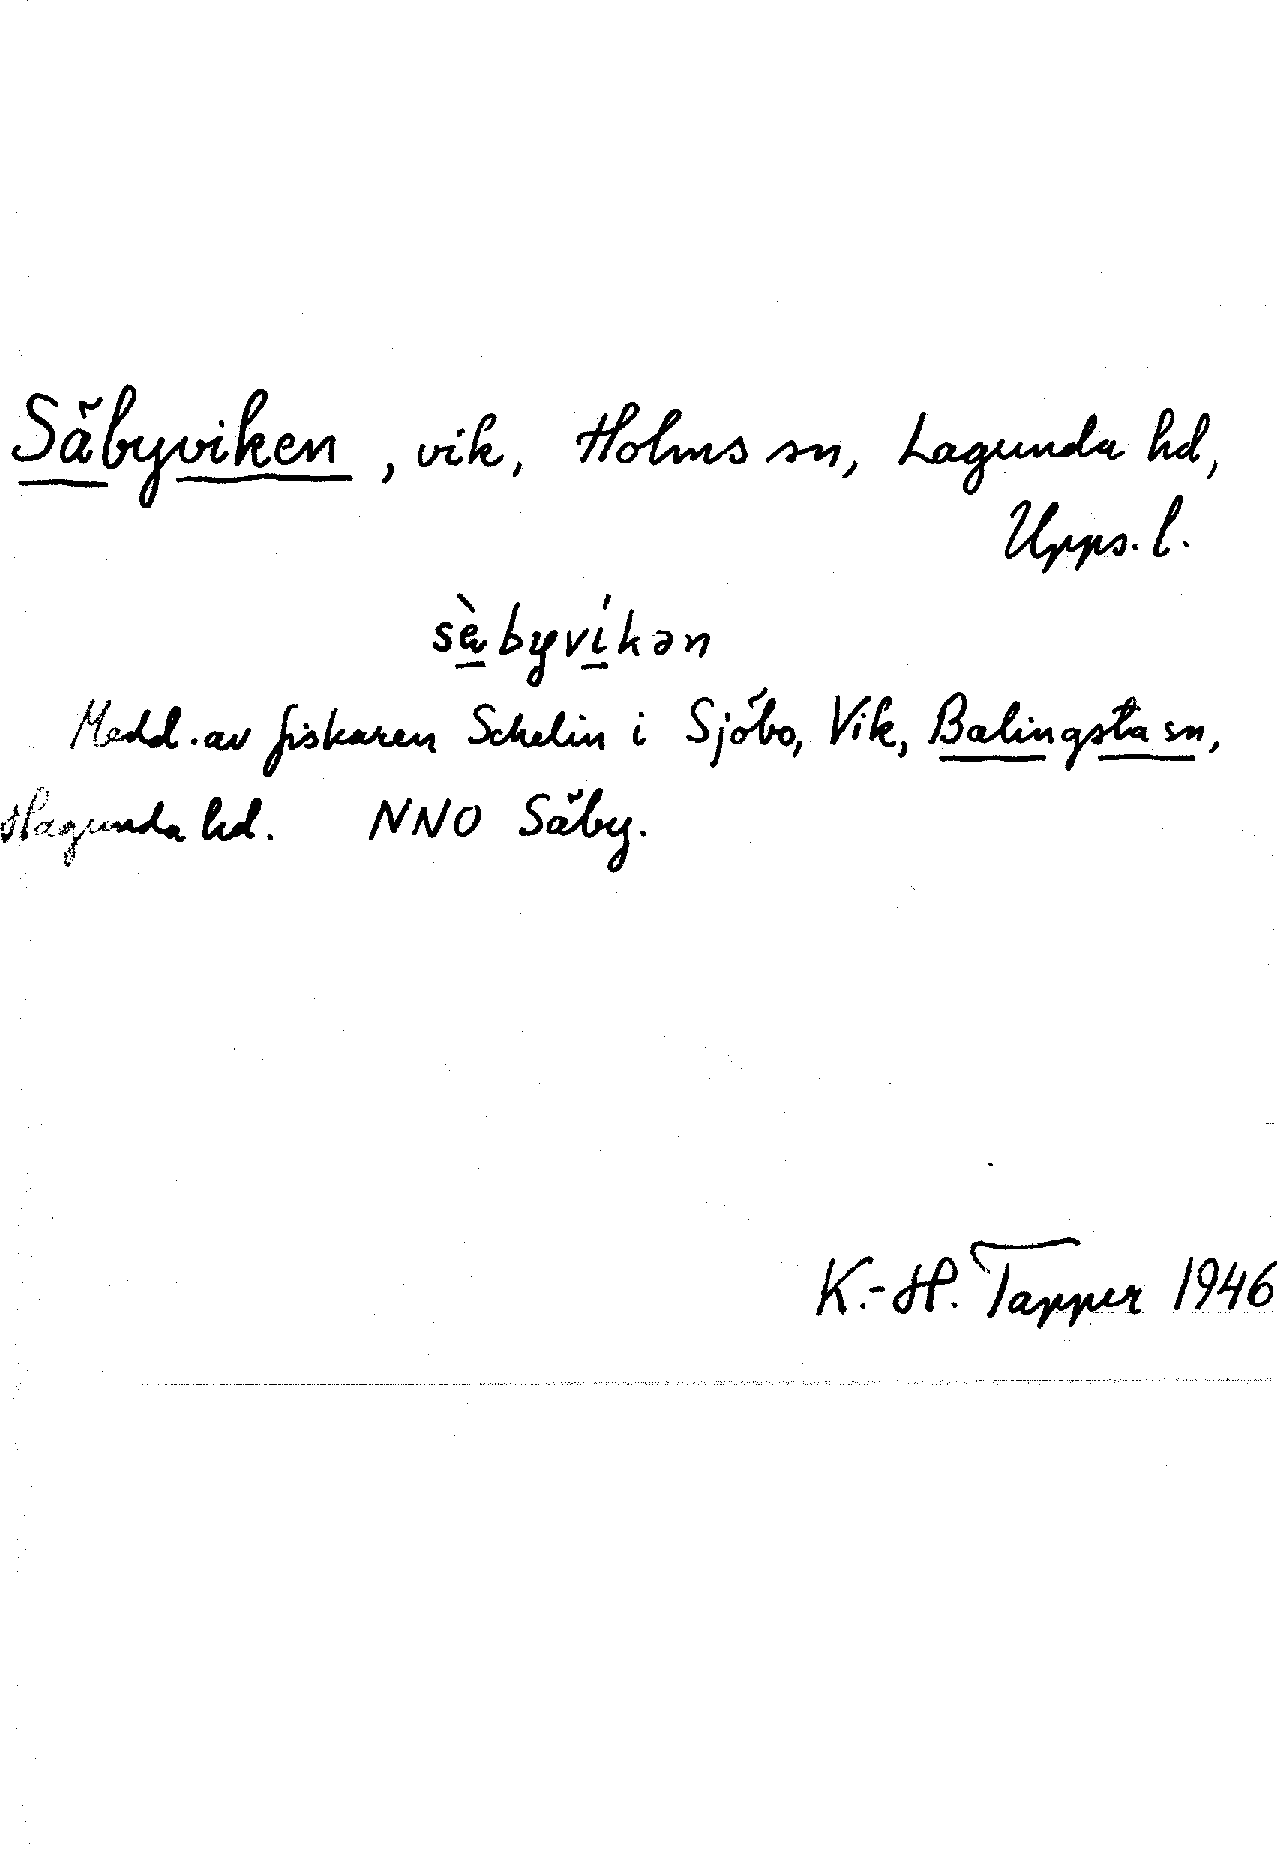 Säbyviken, vik, Holms sn, Lagunda hd,
Upps. l.
sæ̀byvíkən
Medd. av fiskaren Schelin i Sjöbo, Vik, Balingsta sn,
Hagunda hd. NNO Säby.
K.-H. Tapper 1946